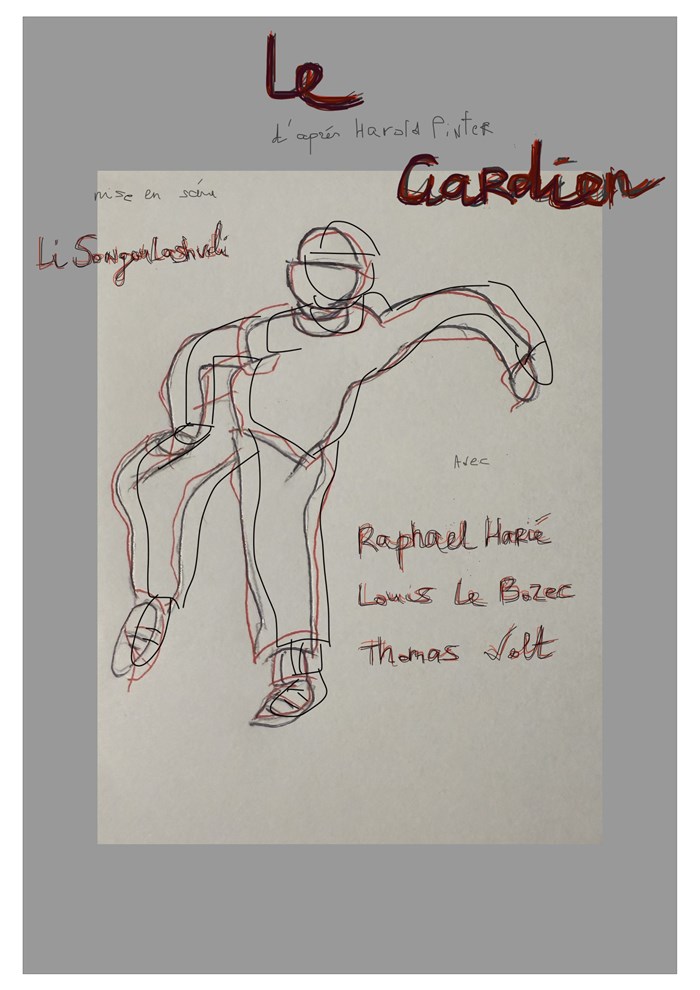 Le
d'après Harold Pinter
Gardien
mise en scène
Li
Avec
Raphael Harié
Louis Le Bozec
Thomas Volt